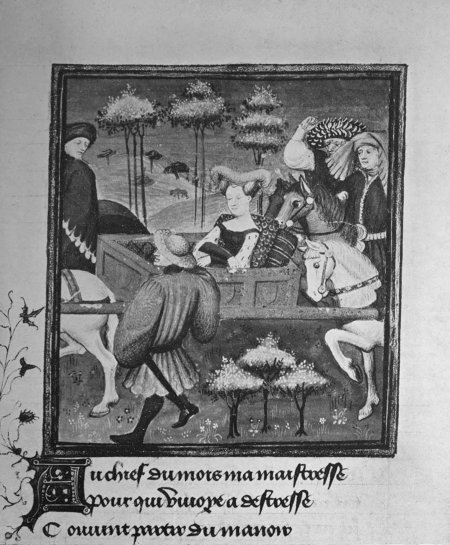 Au chief du mois ma maistresse
Pour qui viuoye a destresse
Conuint partir du manoir